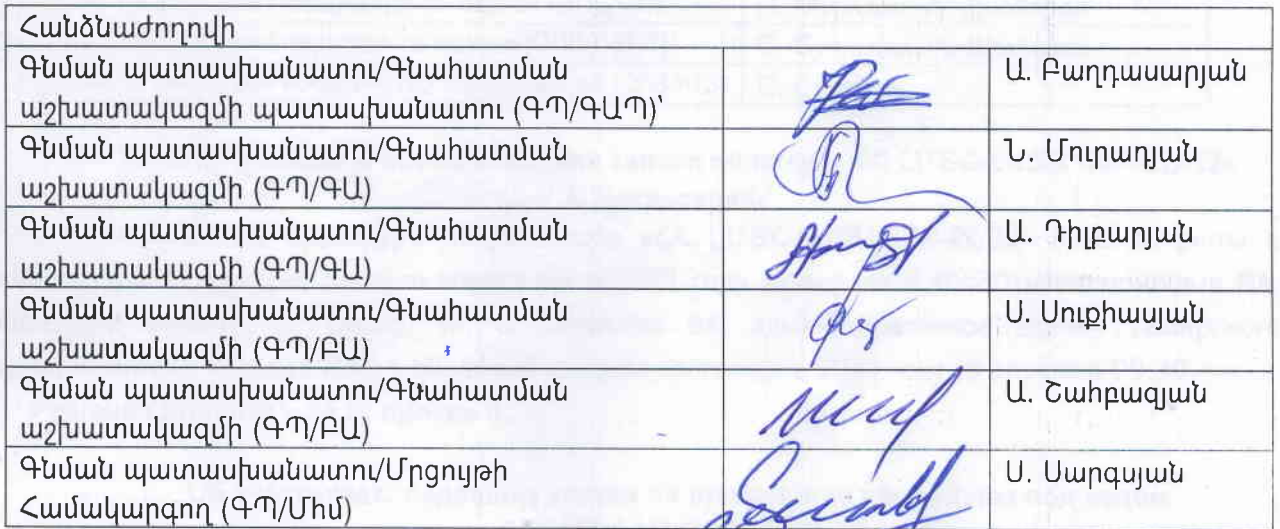 Հանձնաժողովի
Գնման պատասխանատու/Գնահատման
աշխատակազմի պատասխանատու (ԳՊ/ԳԱՊ)՝
Ա. Բաղդասարյան
Գնման պատասխանատու/Գնահատման
աշխատակազմի (ԳՊ/ԳԱ)
Ն. Մուրադյան
Գնման պատասխանատու/Գնահատման
աշխատակազմի (ԳՊ/ԳԱ)
Ա. Դիլբարյան
Գնման պատասխանատու/Գնահատման
աշխատակազմի (ԳՊ/ԲԱ)
Ս. Սուքիասյան
Գնման պատասխանատու/Գնահատման
աշխատակազմի (ԳՊ/ԲԱ)
Ա. Շահբազյան
Գնման պատասխանատու/Մրցույթի
Համակարգող (ԳՊ/Մհմ)
Ս. Սարգսյան